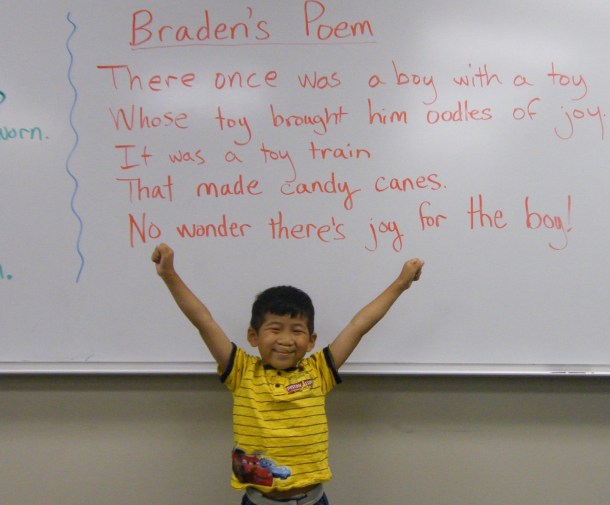 Braden's Poem
There once was a boy with a toy
Whose toy brought him oodles of joy.
It was a toy train
That made candy canes.
No wonder there's joy for the boy!
worn.